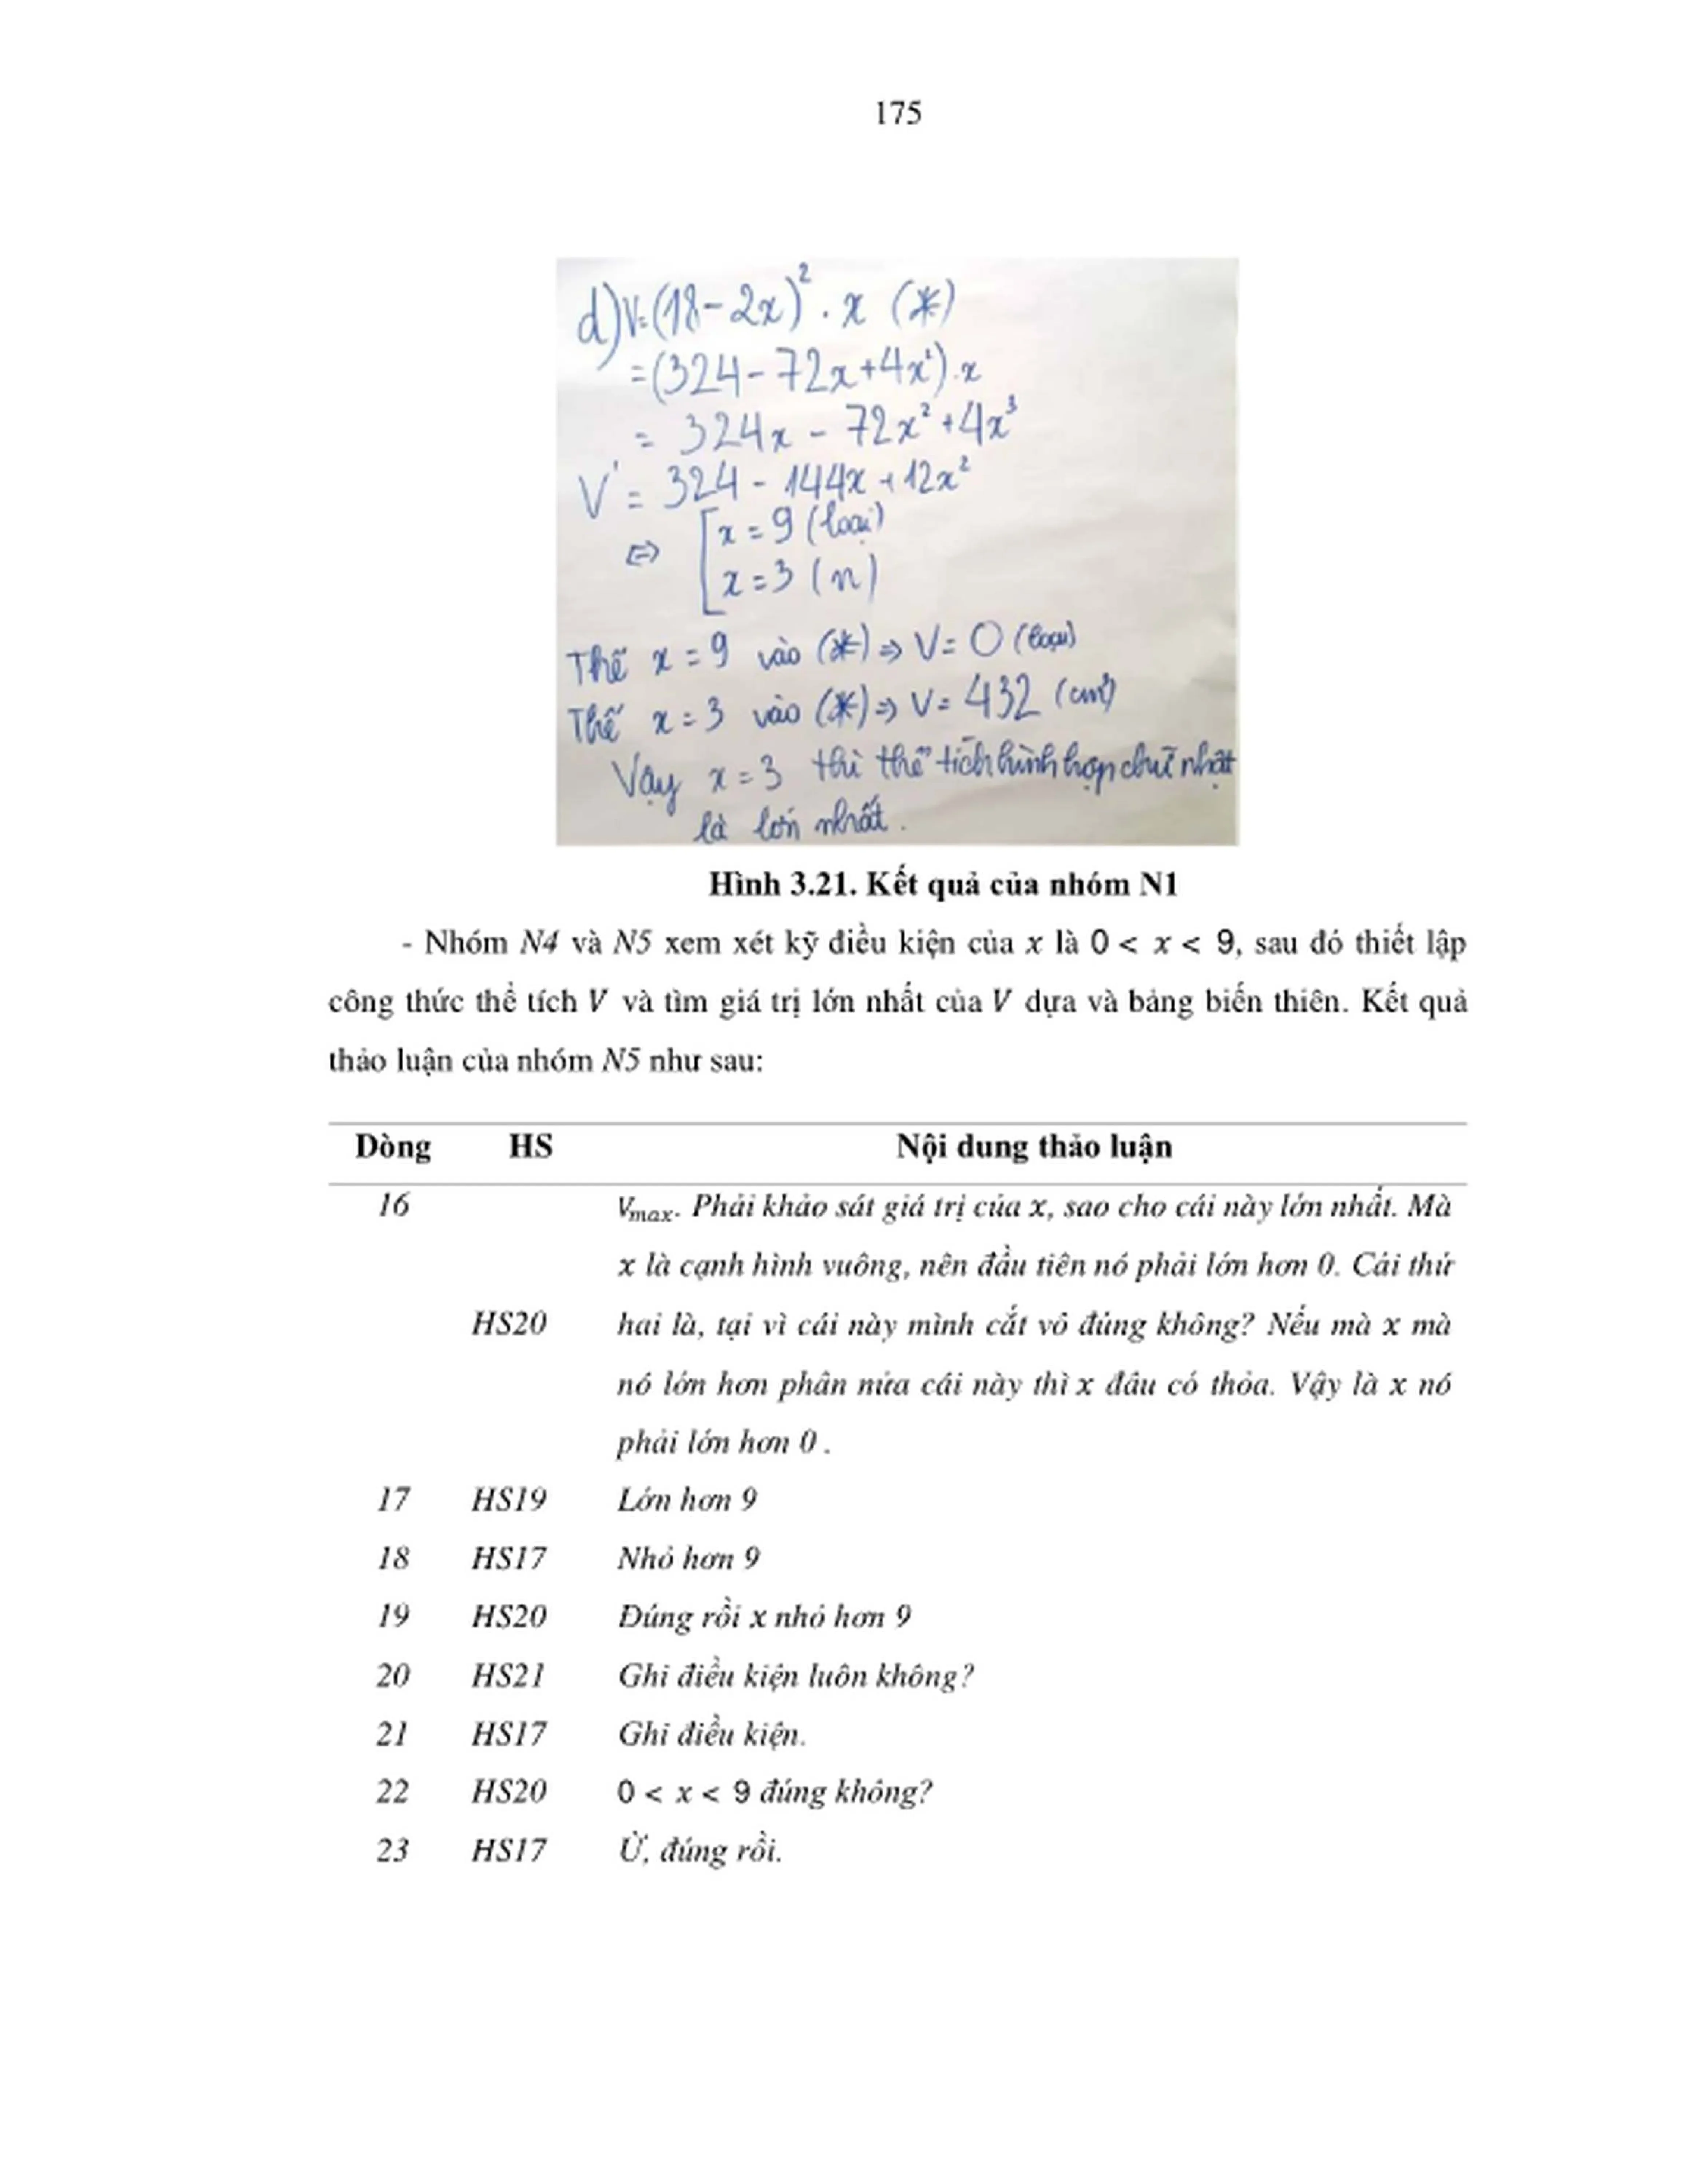 175
d) V=(18-2x)². x (*)
=(324-72x+4x²).x
= 324x - 72x²+4x³
V' = 324 - 144x + 12x²
⇔ [ x=9 (loại)
x=3 (n)
Thế x = 9 vào (*) ⇒ V= 0 (loại)
Thế x = 3 vào (*) ⇒ V= 432 (cm³)
Vậy x = 3 thì thể tích hình hợp chữ nhật
là lớn nhất.
Hình 3.21. Kết quả của nhóm N1
- Nhóm N4 và N5 xem xét kỹ điều kiện của x là 0 < x < 9, sau đó thiết lập
công thức thể tích V và tìm giá trị lớn nhất của V dựa và bảng biến thiên. Kết quả
thảo luận của nhóm N5 như sau:
Dòng HS Nội dung thảo luận
16 Vmax. Phải khảo sát giá trị của x, sao cho cái này lớn nhất. Mà
x là cạnh hình vuông, nên đầu tiên nó phải lớn hơn 0. Cái thứ
HS20 hai là, tại vì cái này mình cắt vô đúng không? Nếu mà x mà
nó lớn hơn phân nửa cái này thì x đâu có thỏa. Vậy là x nó
phải lớn hơn 0 .
17 HS19 Lớn hơn 9
18 HS17 Nhỏ hơn 9
19 HS20 Đúng rồi x nhỏ hơn 9
20 HS21 Ghi điều kiện luôn không?
21 HS17 Ghi điều kiện.
22 HS20 0 < x < 9 đúng không?
23 HS17 Ừ, đúng rồi.